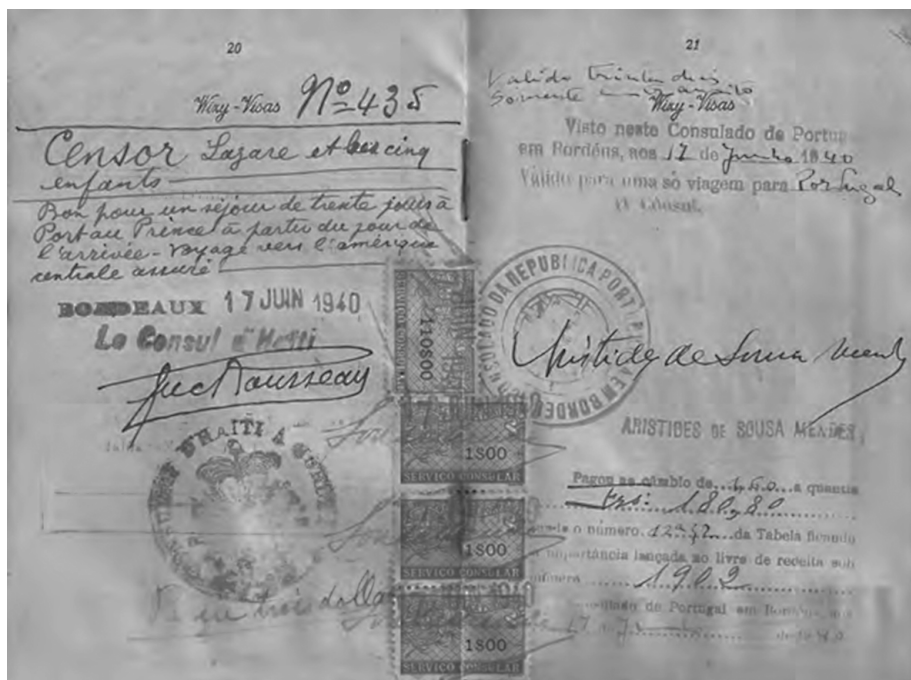 20
Wizy-Visas Nº 435
Censor Lazare et les cinq
enfants
Bon pour un séjour de trente jours à
Port au Prince à partir du jour de
l'arrivée - Voyage vers l'amérique
centrale assuré
BORDEAUX 17 JUIN 1940
Le Consul d'Haiti
Luc Rousseau
D'HAITI A
trois dollars
110$00
1$00
SERVIÇO CONSULAR
1$00
SERVIÇO CONSULAR
1$00
SERVIÇO CONSULAR
21
Valido trinta dias
Somente
Wizy-Visas
Visto neste Consulado de Portu
em Bordéus, aos 17 de Junho 1940
Válido para uma só viagem para Portugal
O Cônsul,
CONSULADO DA REPUBLICA PORTUGUESA EM BORDEUS
Aristides de Sousa Mendes
ARISTIDES DE SOUSA MENDES
Pagou ao câmbio de a quantia
o número da Tabela ficando
a importância lançada no livro de receita sob
número 1902
Consulado de Portugal em Bordéus, aos
17 de